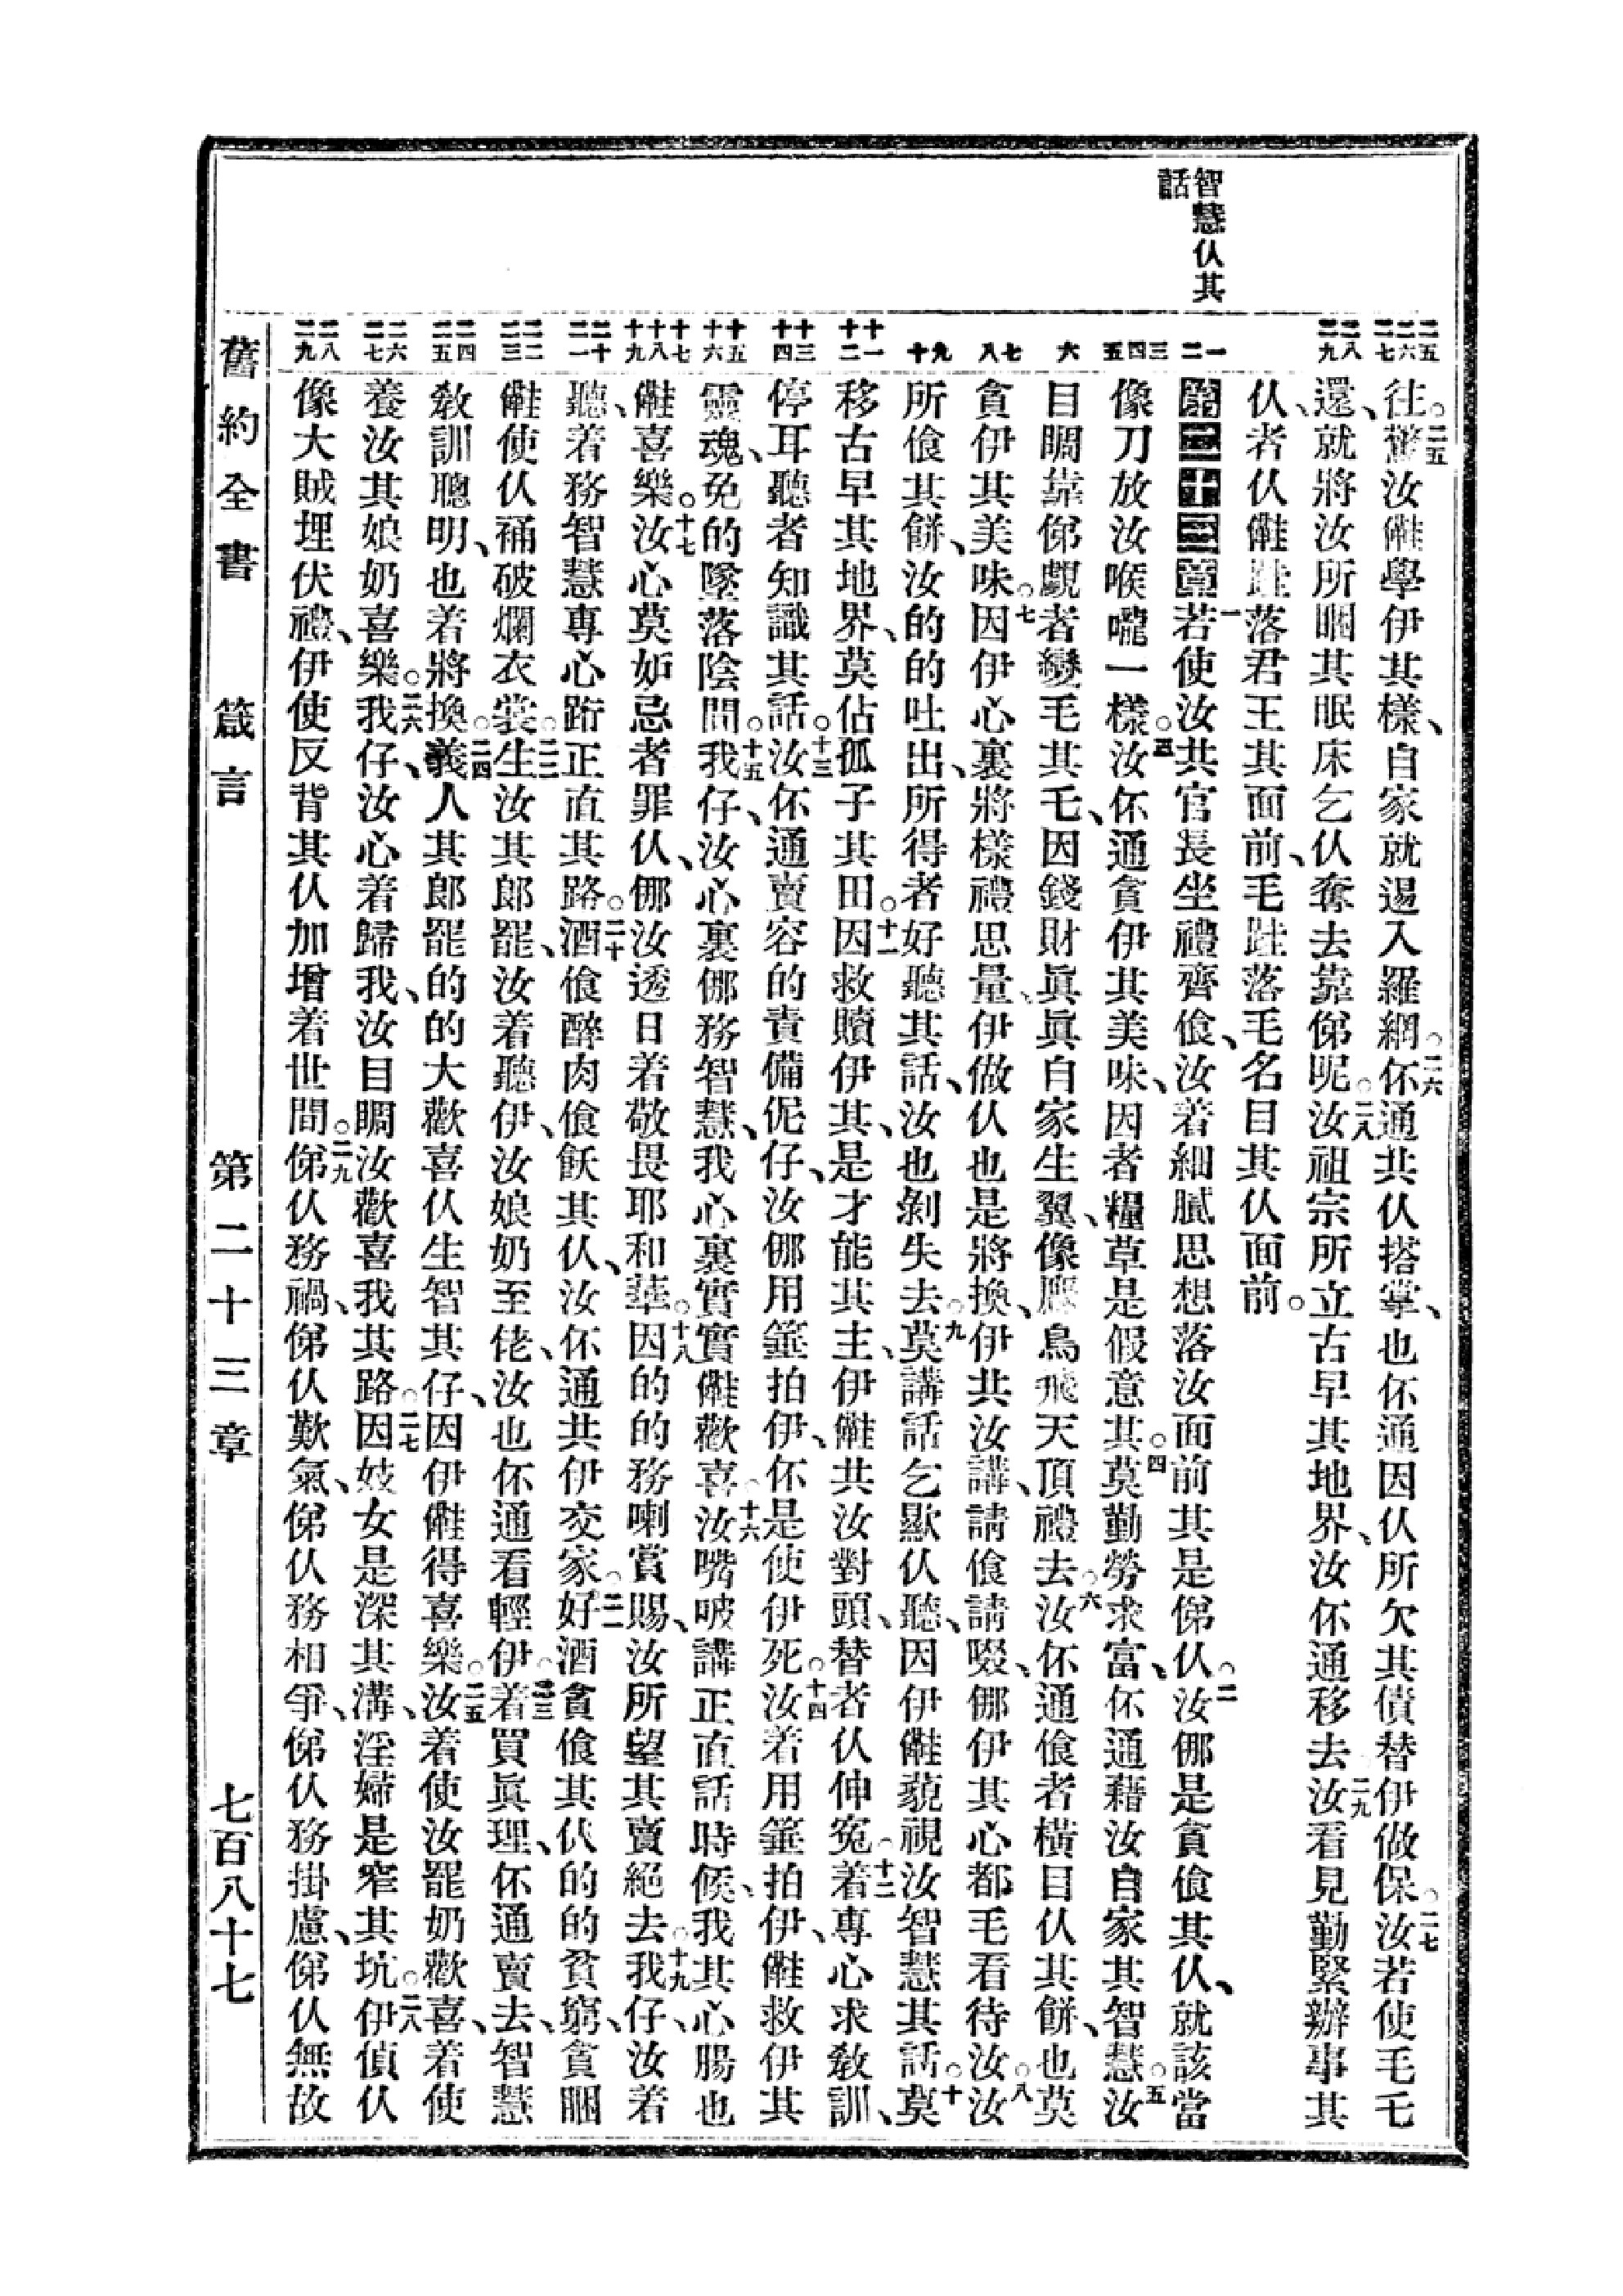 智慧仈其
話
二五 二六 二七 二八 二九 一 二 三 四 五 六 七 八 九 十 十一 十二 十三 十四 十五 十六 十七 十八 十九 二十 二一 二二 二三 二四 二五 二六 二七 二八 二九
往。二五驚汝㒕學伊其樣、自家就逿入羅網。二六伓通共仈搭掌、也伓通因仈所欠其債替伊做保。二七汝若使毛乇
還、就將汝所睏其眠床乞仈奪去靠俤呢。二八汝祖宗所立古早其地界、汝伓通移去。二九汝看見勤緊辦事其
仈、者仈㒕跬落君王其面前、毛跬落毛名目其仈面前。
第二十三章一若使汝共官長坐禮齊飡、汝着細膩思想落汝面前其是俤仈。二汝倻是貪飡其仈、就該當
像刀放汝喉嚨一樣。三汝伓通貪伊其美味、因者糧草是假意其。四莫勤勞求富、伓通藉汝自家其智慧。五汝
目睭靠俤覷者變毛其乇、因錢財眞眞自家生翼、像鷹鳥飛天頂禮去。六汝伓通飡者橫目仈其餅、也莫
貪伊其美味。七因伊心裏將樣禮思量、伊做仈也是將換、伊共汝講、請飡請啜、倻伊其心都毛看待汝。八汝
所飡其餅、汝的的吐出、所得者好聽其話、汝也剝失去。九莫講話乞歞仈聽、因伊㒕藐視汝智慧其話。十莫
移古早其地界、莫佔孤子其田。十一因救贖伊其、是才能其主、伊㒕共汝對頭、替者仈伸冤。十二着專心求敎訓、
停耳聽者知識其話。十三汝伓通賣容的責備伲仔、汝倻用箠拍伊、伓是使伊死。十四汝着用箠拍伊、㒕救伊其
靈魂、免的墜落陰間。十五我仔、汝心裏倻務智慧、我心裏實實㒕歡喜。十六汝嘴㗑講正直話時候、我其心腸也
㒕喜樂。十七汝心莫妬忌者罪仈、倻汝透日着敬畏耶和華。十八因的的務喇賞賜、汝所望其賣絕去。十九我仔、汝着
聽、着務智慧專心跕正直其路。二十酒飡醉肉飡飫其仈、汝伓通共伊交家。二一好酒貪飡其仈的的貧窮、貪睏
㒕使仈䘄破爛衣裳。二二生汝其郎罷、汝着聽伊、汝娘奶至佬、汝也伓通看輕伊。二三着買眞理、伓通賣去、智慧
敎訓聰明、也着將換。二四義人其郎罷的的大歡喜、仈生智其仔、因伊㒕得喜樂。二五汝着使汝罷奶歡喜、着使
養汝其娘奶喜樂。二六我仔、汝心着歸我、汝目睭汝歡喜我其路。二七因妓女是深其溝、淫婦是窄其坑。二八伊偵仈
像大賊埋伏禮、伊使反背其仈加增着世間。二九俤仈務禍、俤仈歎氣、俤仈務相爭、俤仈務掛慮、俤仈無故
舊約全書 箴言 第二十三章 七百八十七